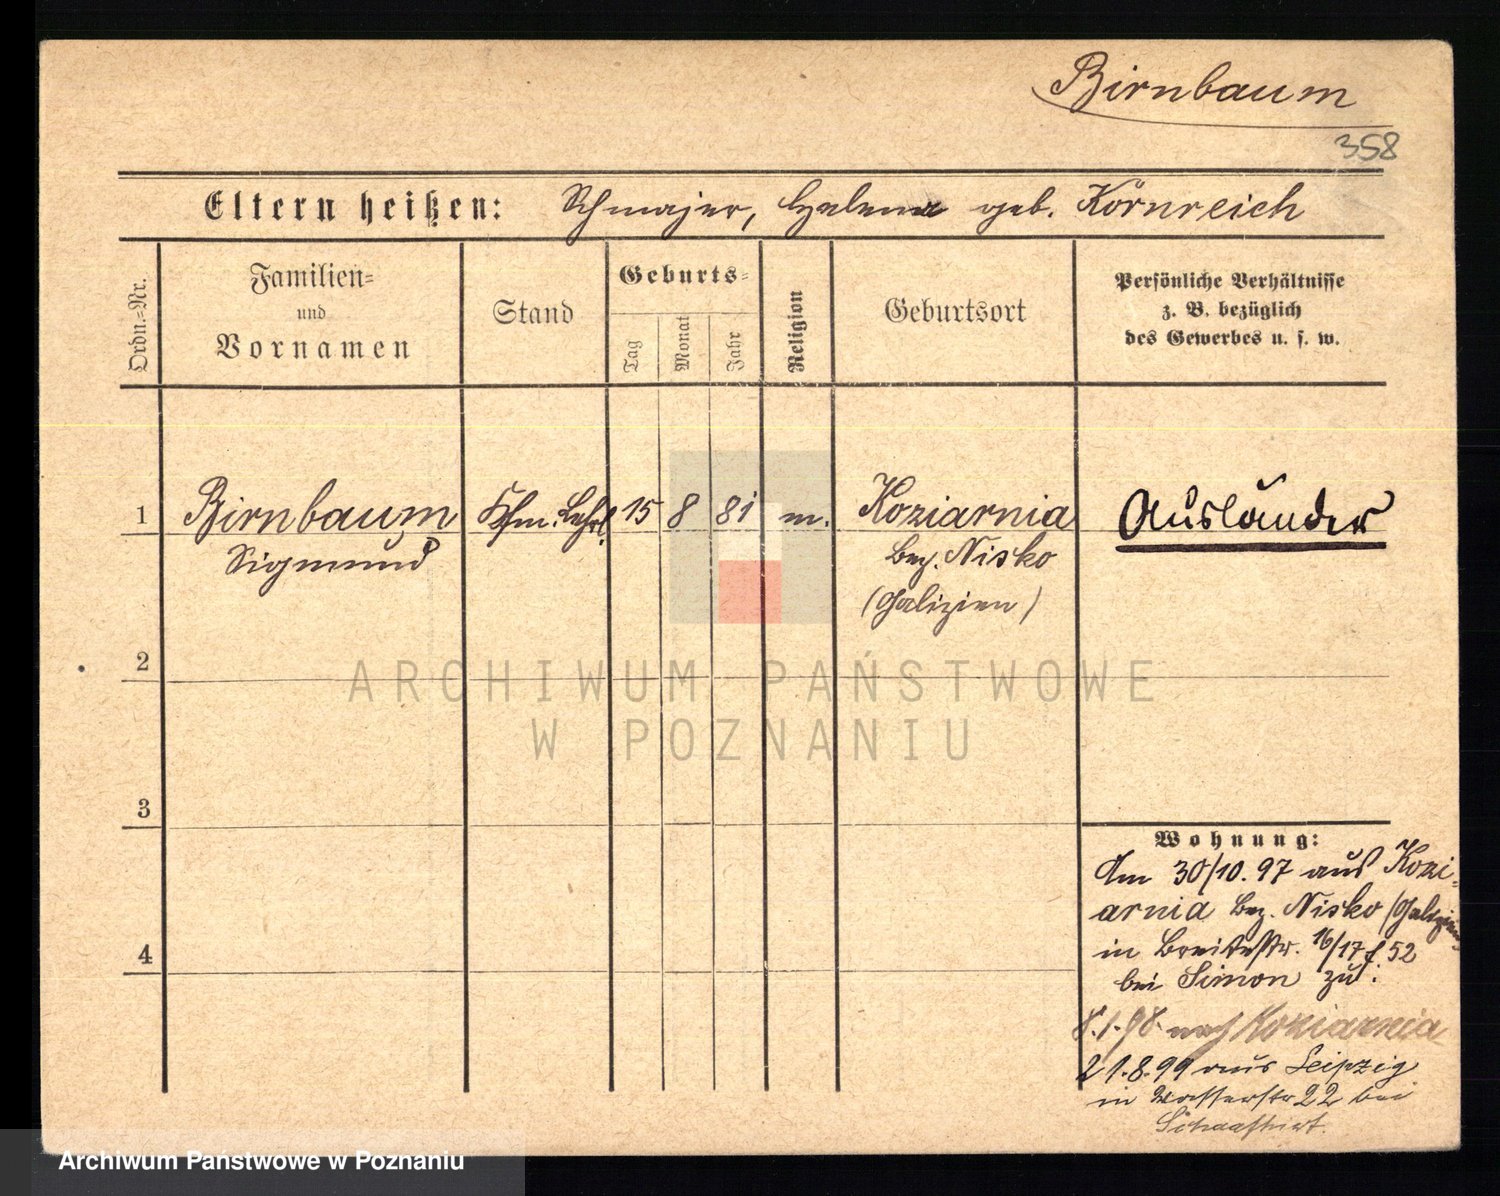 Birnbaum
358
Eltern heißen: Schmajer, Helena geb. Körnreich
Ordn.=Nr.
Familien=
und
Vornamen
Stand
Geburts=
Tag
Monat
Jahr
Religion
Geburtsort
Persönliche Verhältnisse
z. B. bezüglich
des Gewerbes u. s. w.
1 Birnbaum Kfm. Lehrl. 15 8 81 m. Koziarnia Ausländer
Sigmund Bez. Nisko
(Galizien)
2
ARCHIWUM PAŃSTWOWE
W POZNANIU
3
Wohnung:
Am 30/10. 97 aus Kozi-
arnia Bez. Nisko (Galizien
4
in Breitestr. 16/17 52
bei Simon zu.
8.1.98. nach Koziarnia
21.8.99 aus Leipzig
in Wasserstr 22 bei
Archiwum Państwowe w Poznaniu